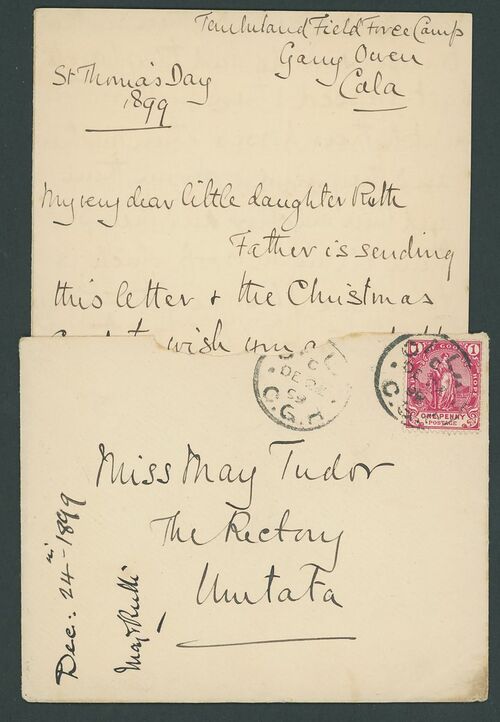 Tembuland Field Force Camp
Gany Owen
Cala
St Thomas's Day
1899
My very dear little daughter Ruth
Father is sending
this letter & the Christmas
wish you a
C.G.H
DE
99
OF GOOD HOPE
1
ONE PENNY
POSTAGE
Miss May Tudor
The Rectory
Umtata
Dec: 24th 1899
May & Ruth